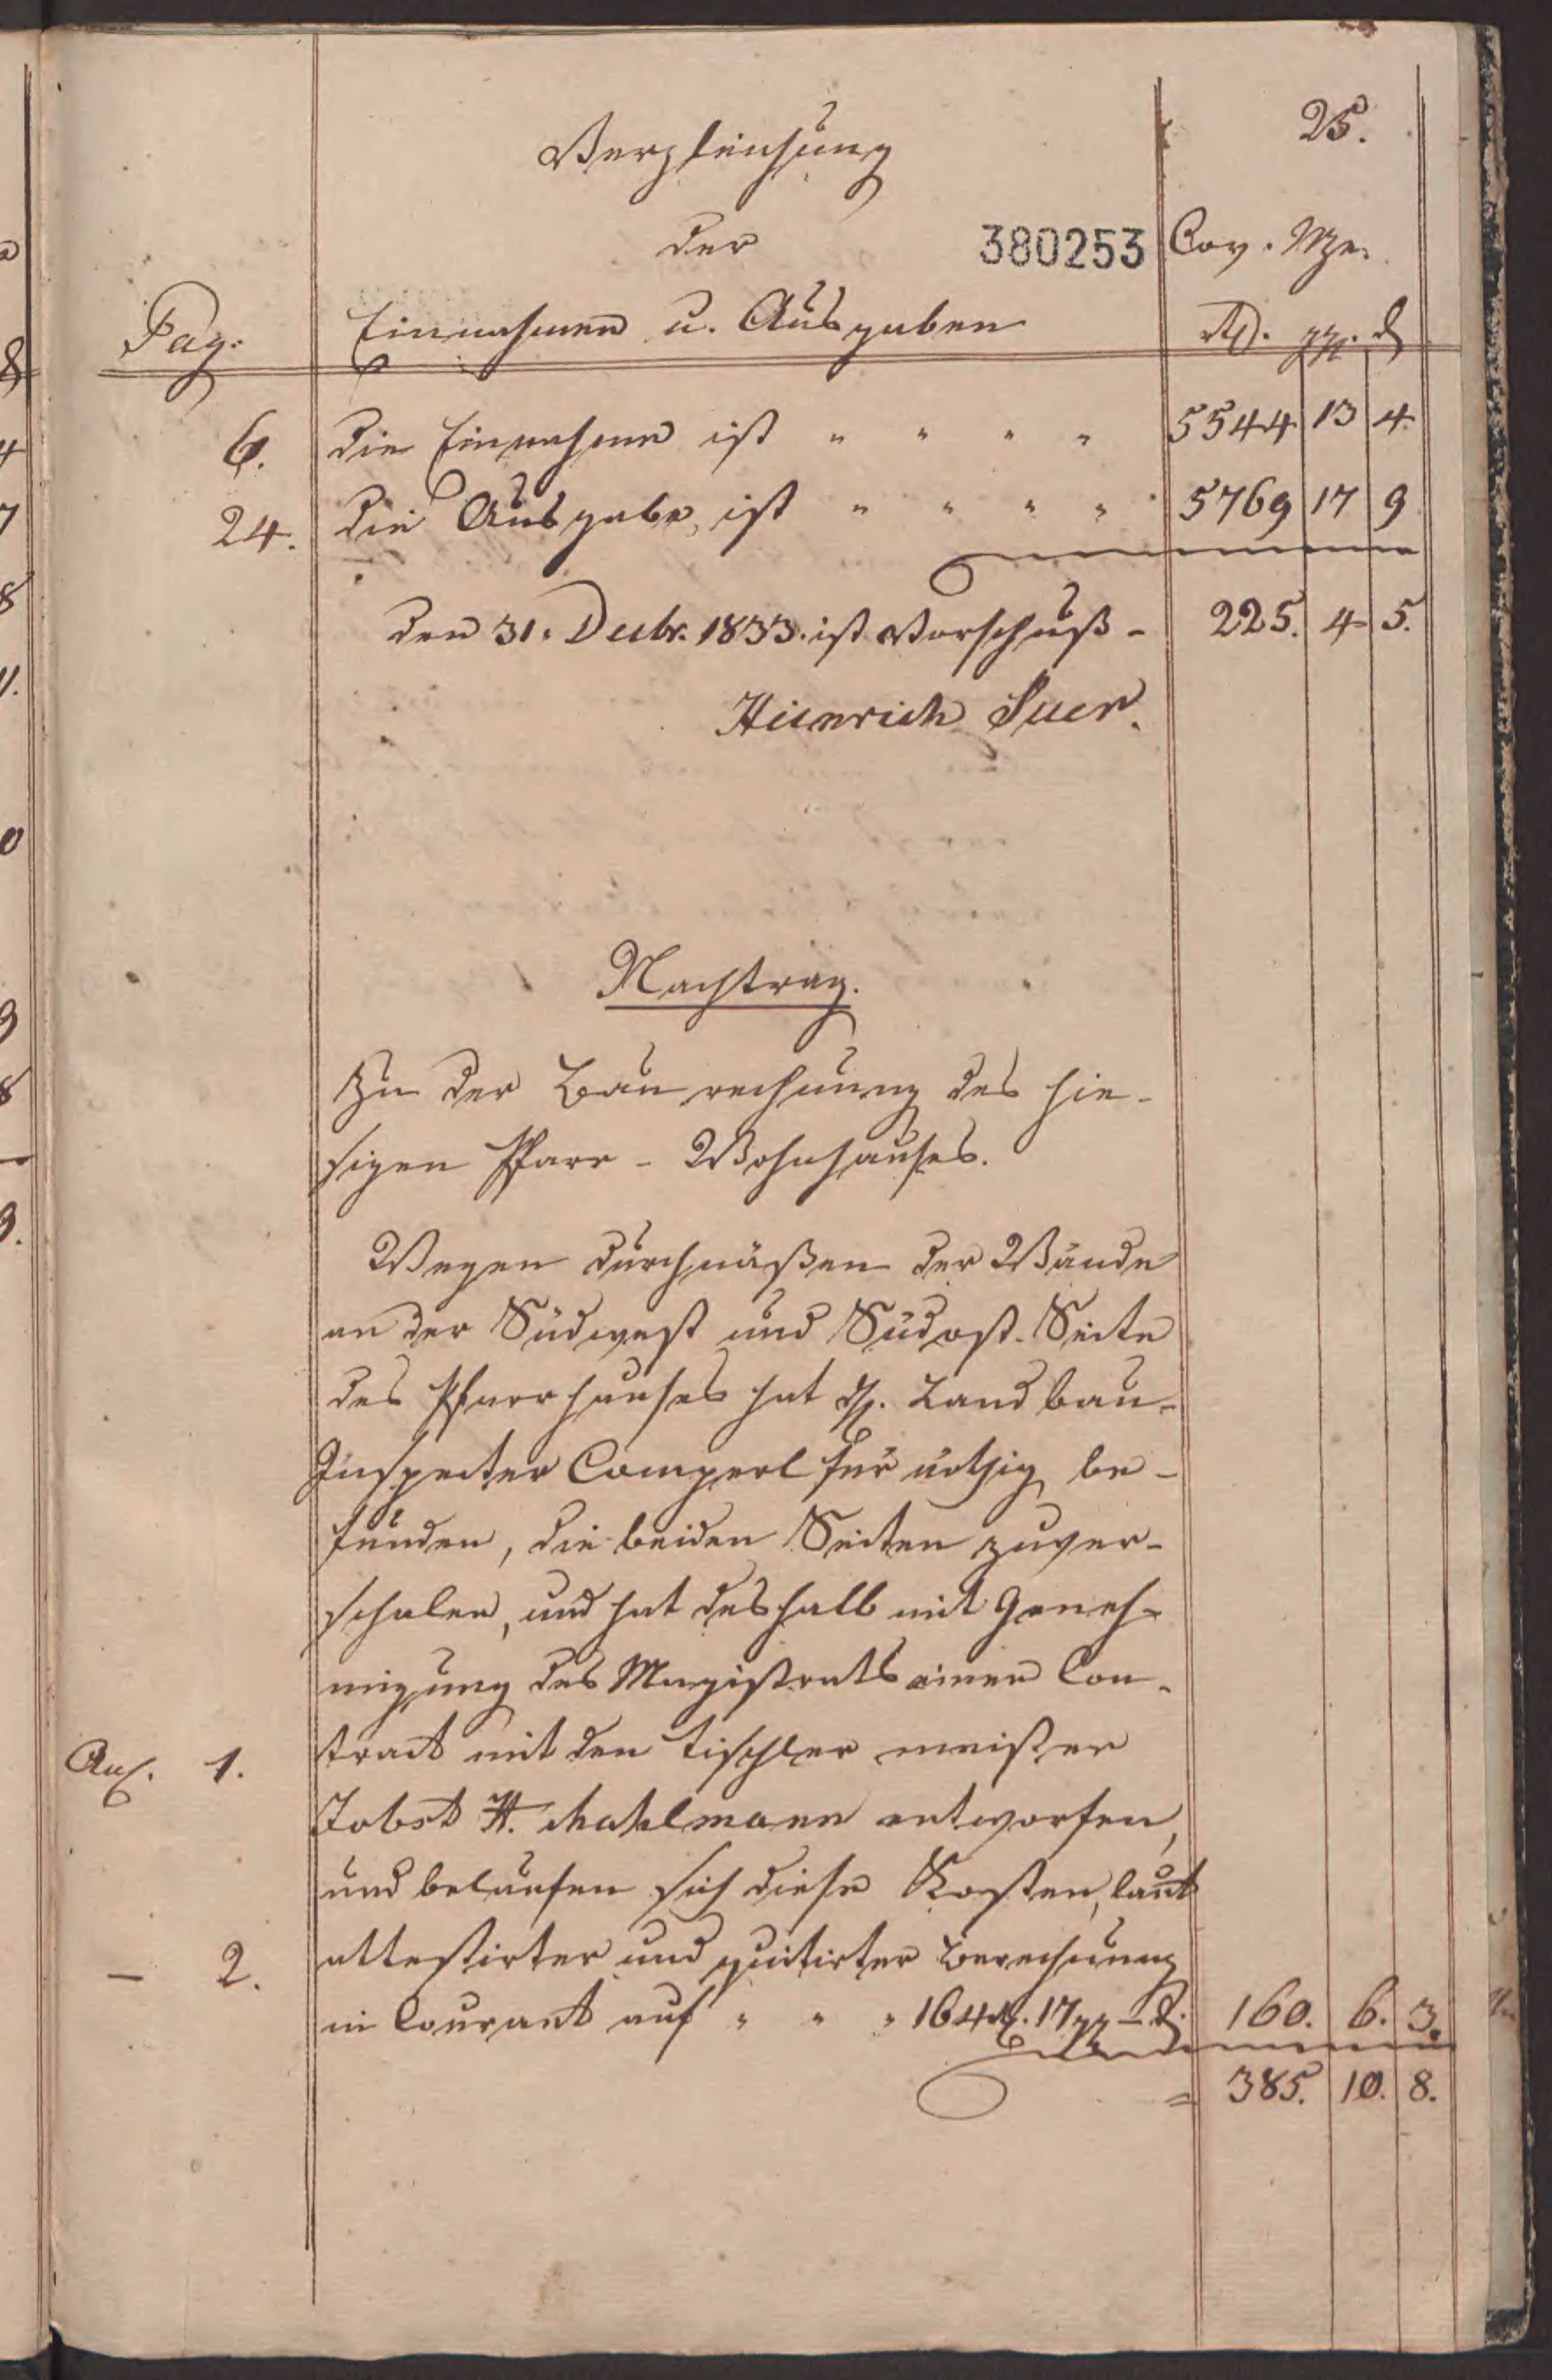 25.
Vergleichung
der
380253 Cov. Mze.
Pag. Einnahmen u. Ausgaben Rth. ggr. d
6. die Einnahme ist " " " " 5544 13 4.
24. die Ausgabe ist " " " " 5769 17 9
den 31. Decbr. 1833. ist Vorschuß - 225. 4 5.
Heinrich Suer.
Nachtrag.
Zu der Baurechnung des hie-
sigen Pfarr-Wohnhauses.
Wegen durchnäßen der Wände
an der Südwest und Südost-Seite
des Pfarrhauses hat H. Landbau-
Inspector Comperl für nöthig be-
funden, die beiden Seiten zuver-
schalen, und hat deshalb mit Geneh-
migung des Magistrats einen Con-
Anl. 1. tract mit den Tischler meister
Jobst H. Mahlmann entworfen,
und belaufen sich diese Kosten, laut
– 2. attestirter und quitirter Berechnung
in Courant auf " " " 164 rth. 17 ggr – d. 160. 6. 3.
= 385. 10. 8.